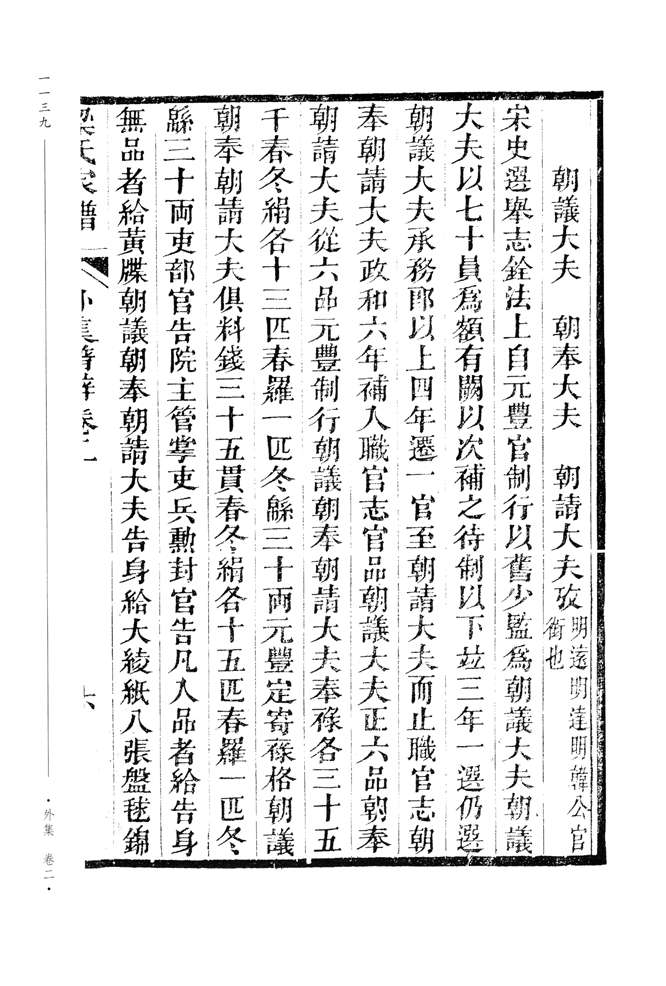 朝議大夫　朝奉大夫　朝請大夫攷明遠明達明韓公官
銜也
宋史選舉志銓法上自元豐官制行以舊少監爲朝議大夫朝議
大夫以七十員爲額有闕以次補之待制以下竝三年一選仍選
朝議大夫承務郎以上四年遷一官至朝請大夫而止職官志朝
奉朝請大夫政和六年補入職官志官品朝議大夫正六品朝奉
朝請大夫從六品元豐制行朝議朝奉朝請大夫奉祿各三十五
千春冬絹各十三匹春羅一匹冬緜三十兩元豐定寄祿格朝議
朝奉朝請大夫俱料錢三十五貫春冬絹各十五匹春羅一匹冬
緜三十兩吏部官告院主管掌吏兵勲封官告凡入品者給告身
無品者給黃牒朝議朝奉朝請大夫告身給大綾紙八張盤毬錦
氏家譜　集　卷二　六
一一三九
・外集　卷二・